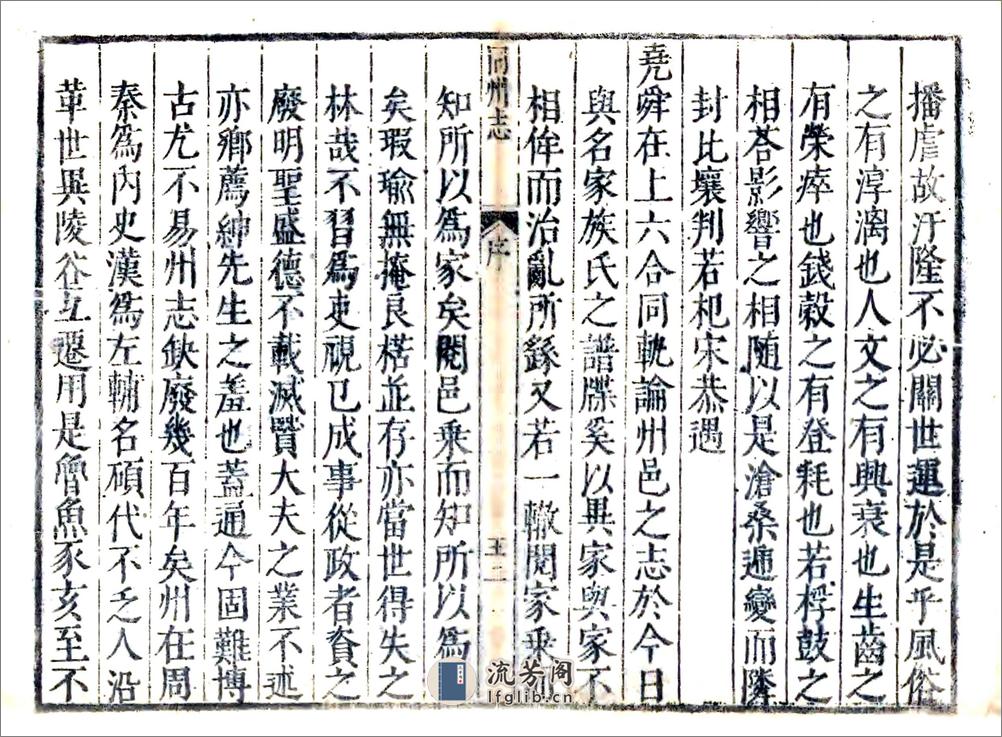 播虐故汙隆不必關世運於是乎風俗
之有淳漓也人文之有興衰也生齒之
有榮瘁也錢穀之有登耗也若桴鼓之
相荅影響之相随以是滄桑遞變而隣
封比壤判若杞宋恭遇
堯舜在上六合同軌論州邑之志於今日
與名家族氏之譜牒奚以異家與家不
相侔而治亂所繇又若一轍閱家乘而
同州志
序
二
知所以爲家矣閱邑乘而知所以爲
矣瑕瑜無掩良楛並存亦當世得失之
林哉不習爲吏視已成事從政者資之
廢明聖盛德不載滅賢大夫之業不述
亦鄉薦紳先生之羞也蓋通今固難博
古尤不易州志缺廢幾百年矣州在周
秦爲內史漢爲左輔名碩代不乏人沿
革世異陵谷互遷用是魯魚豕亥至不
流芳阁
lfglib.cn